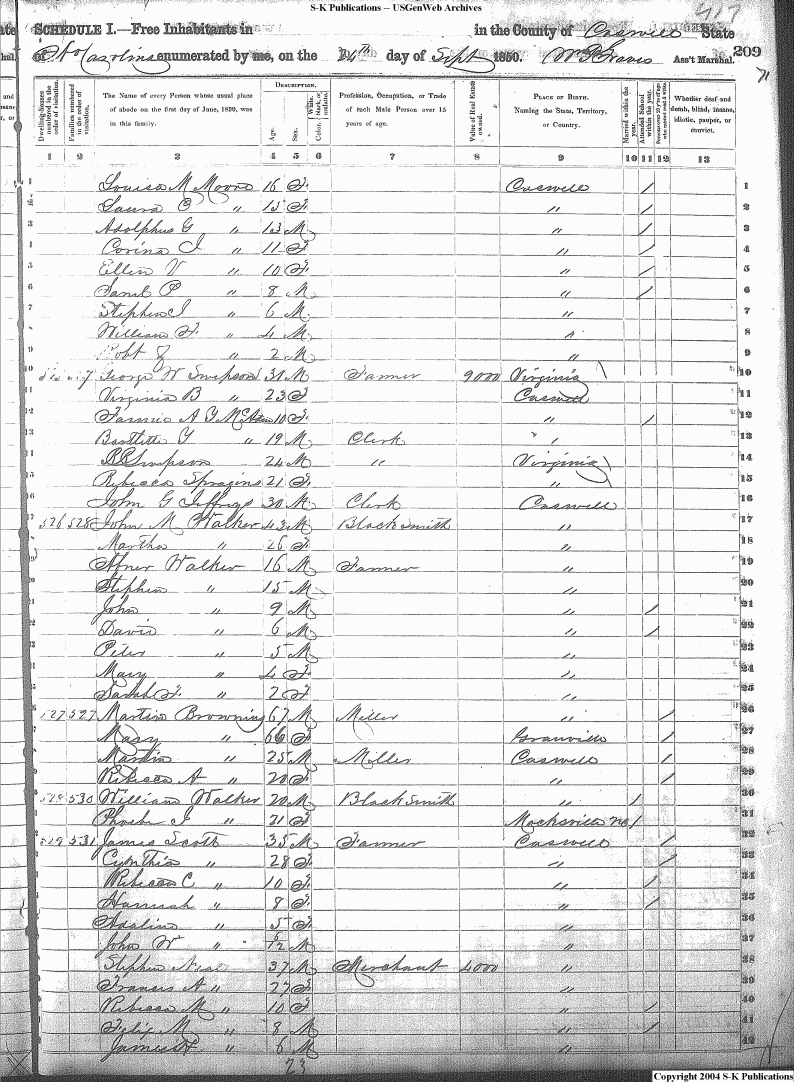 S-K Publications -- USGenWeb Archives
417
SCHEDULE I.—Free Inhabitants in in the County of Caswell State
of N Carolina enumerated by me, on the 24th day of Sept 1850. Ass't Marshal. 209
71
Dwelling-houses numbered in the order of visitation. Families numbered in the order of visitation. The Name of every Person whose usual place of abode on the first day of June, 1850, was in this family. DESCRIPTION. Age. Sex. Color, White, black, or mulatto. Profession, Occupation, or Trade of each Male Person over 15 years of age. Value of Real Estate owned. PLACE OF BIRTH. Naming the State, Territory, or Country. Married within the year. Attended School within the year. Whether deaf and dumb, blind, insane, idiotic, pauper, or convict.
1 2 3 4 5 6 7 8 9 10 11 12 13
1 Louisa M Moore 16 F Caswell / 1
2 Laura C " 15 F " / 2
3 Adolphus G " 13 M " / 3
4 Corina I " 11 F " / 4
5 Ellen V " 10 F " / 5
6 Saml P " 8 M " / 6
7 Stephen I " 6 M " 7
8 William F. " 4 M " 8
9 Robt " 2 M " 9
10 George W Simpson 31 M Farmer 9000 Virginia 10
11 Virginia B " 23 F Caswell 11
12 Fannie A G 10 F " / 12
13 Bartlett Y " 19 M Clerk " 13
14 Simpson 24 M " Virginia 14
15 Rebecca Spragins 21 F " 15
16 John G Jeffrys 30 M Clerk Caswell 16
17 526 528 John M Walker 43 M Black Smith " 17
18 Martha " 26 F " 18
19 Abner Walker 16 M Farmer " 19
20 Stephen " 15 M " 20
21 John " 9 M " / 21
22 David " 6 M " / 22
23 " 5 M " 23
24 Mary " 4 F " 24
25 Sarah F. " 2 F " 25
26 527 Martin Browning 67 M Miller " / 26
27 Mary " 66 F Granville / 27
28 Martin " 25 M Miller Caswell / 28
29 Rebecca A " 20 F " / 29
30 528 530 William Walker 20 M Black Smith " / 30
31 Phoebe J " 21 F Mocksville NC / 31
32 529 531 James Scott 35 M Farmer Caswell / 32
33 Cynthia " 28 F " / 33
34 Rebecca C " 10 F " / 34
35 Hannah " 8 F " / 35
36 Adaline " 5 F " 36
37 John W " /12 M " 37
38 Stephen Neal 37 M Merchant 4000 " 38
39 Francis A " 27 F " 39
40 Rebecca M " 10 F " / 40
41 Felix M " 8 M " / 41
42 James " 6 M " 42
23
Copyright 2004 S-K Publications